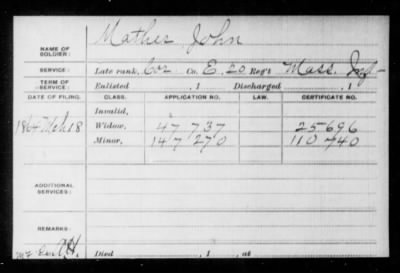 Mather John
NAME OF SOLDIER:
SERVICE: Late rank, Cor Co. E, 20 Reg't Mass. Inf-
TERM OF SERVICE: Enlisted , 1 Discharged , 1
DATE OF FILING. CLASS. APPLICATION NO. LAW. CERTIFICATE NO.
Invalid,
1864 Mch 18 Widow, 47 737 25696
Minor, 147 270 110 740
ADDITIONAL SERVICES:
REMARKS:
Died , 1 , at